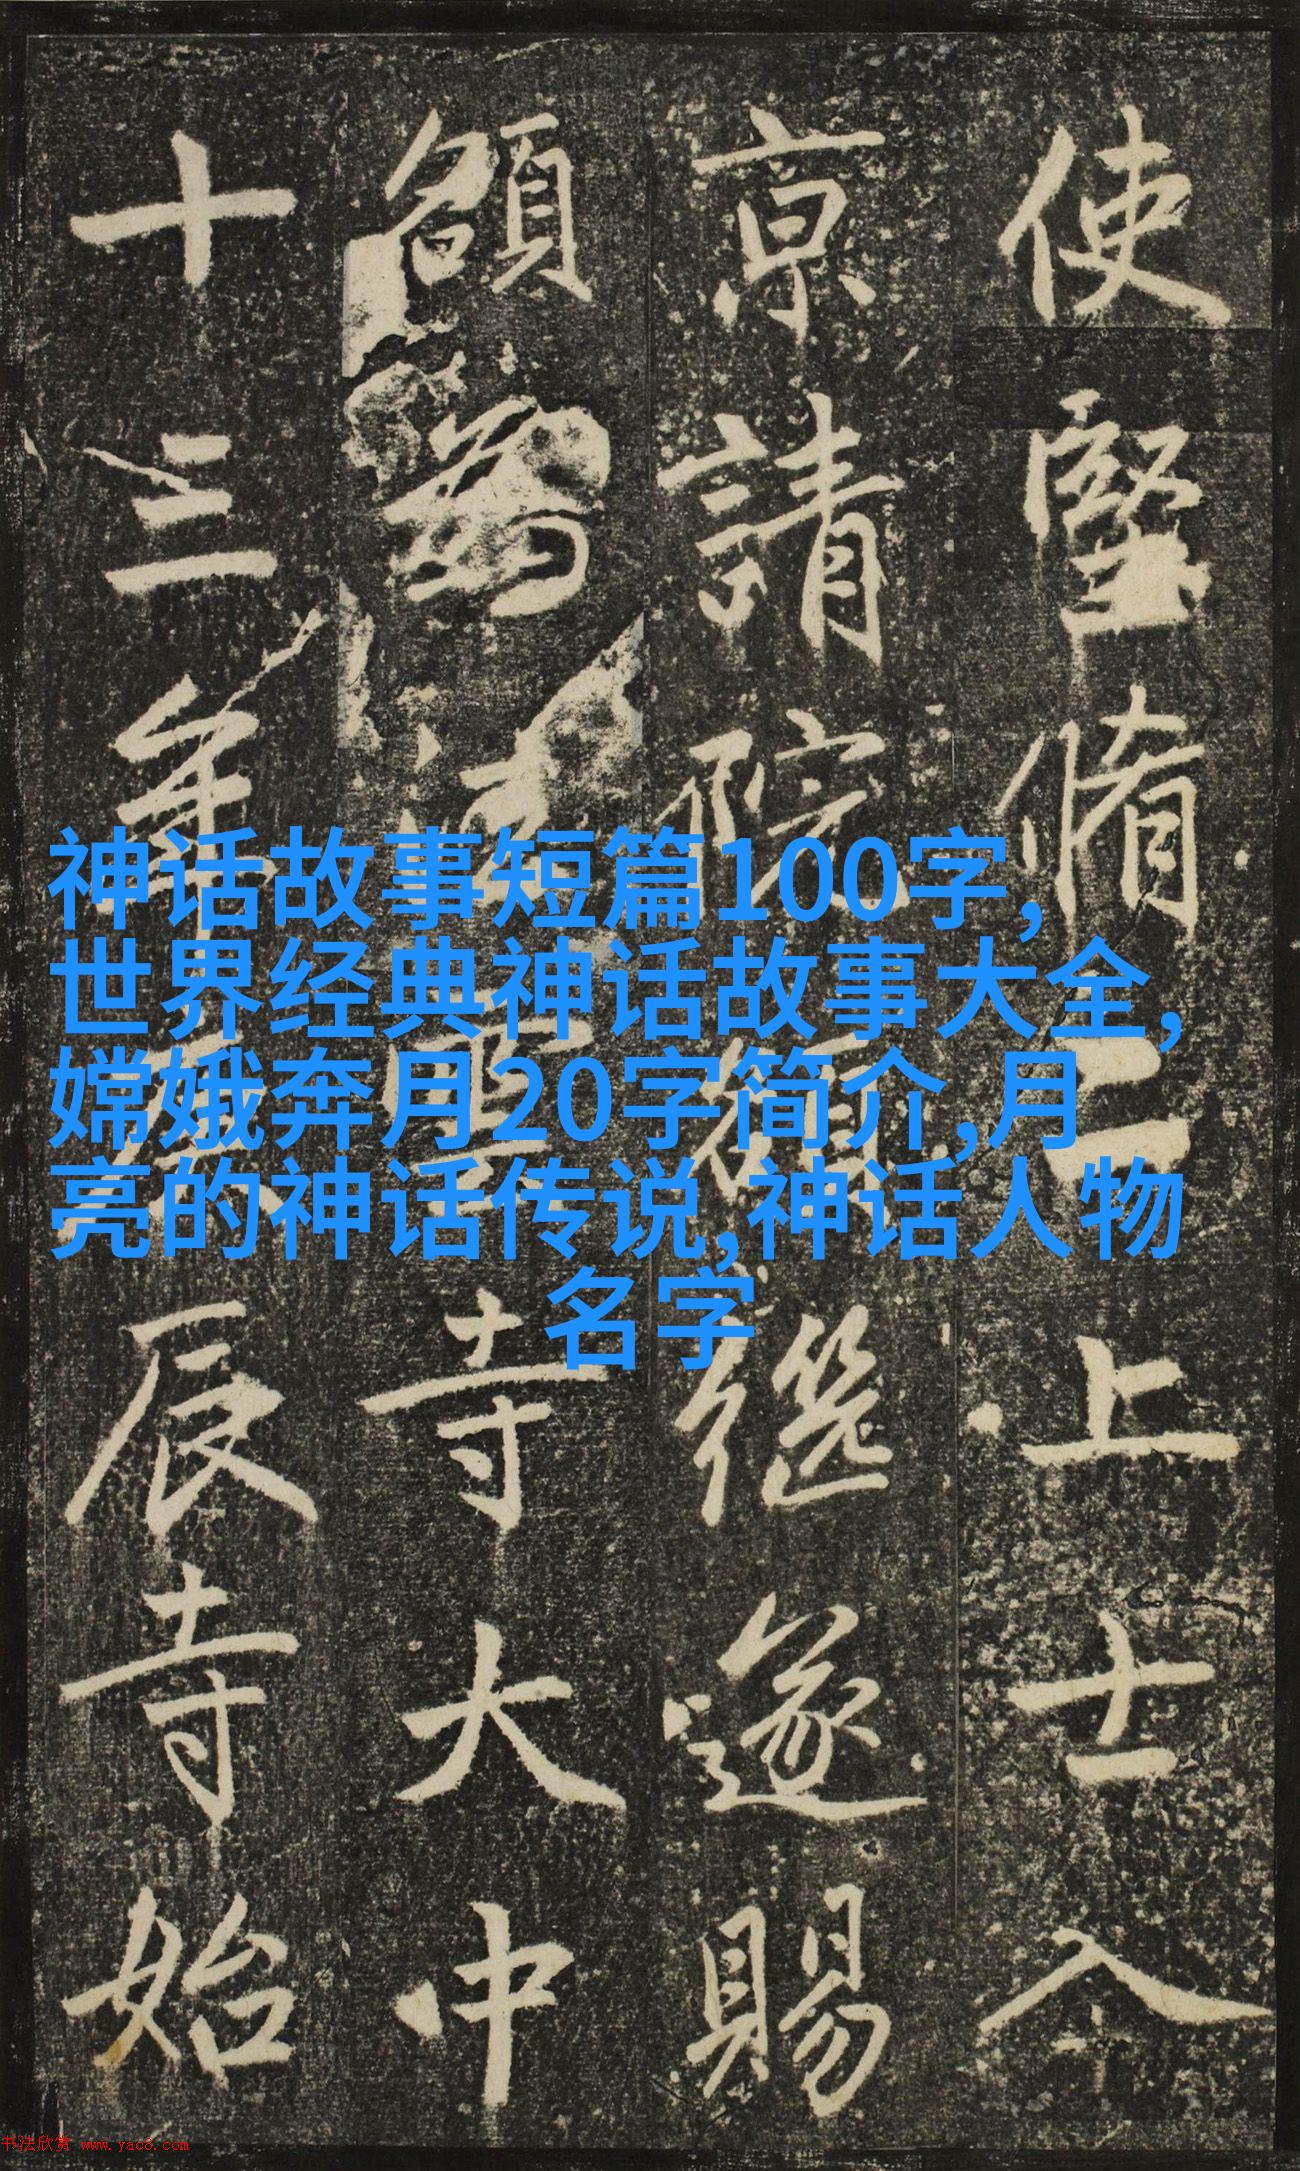 使堅脩二上士入
京請院額繼遂賜
額為寺大中
十三年辰寺始
神话故事短篇100字,
世界经典神话故事大全,
嫦娥奔月20字简介,月
亮的神话传说,神话人物
名字
书法欣赏 www.yac8.com